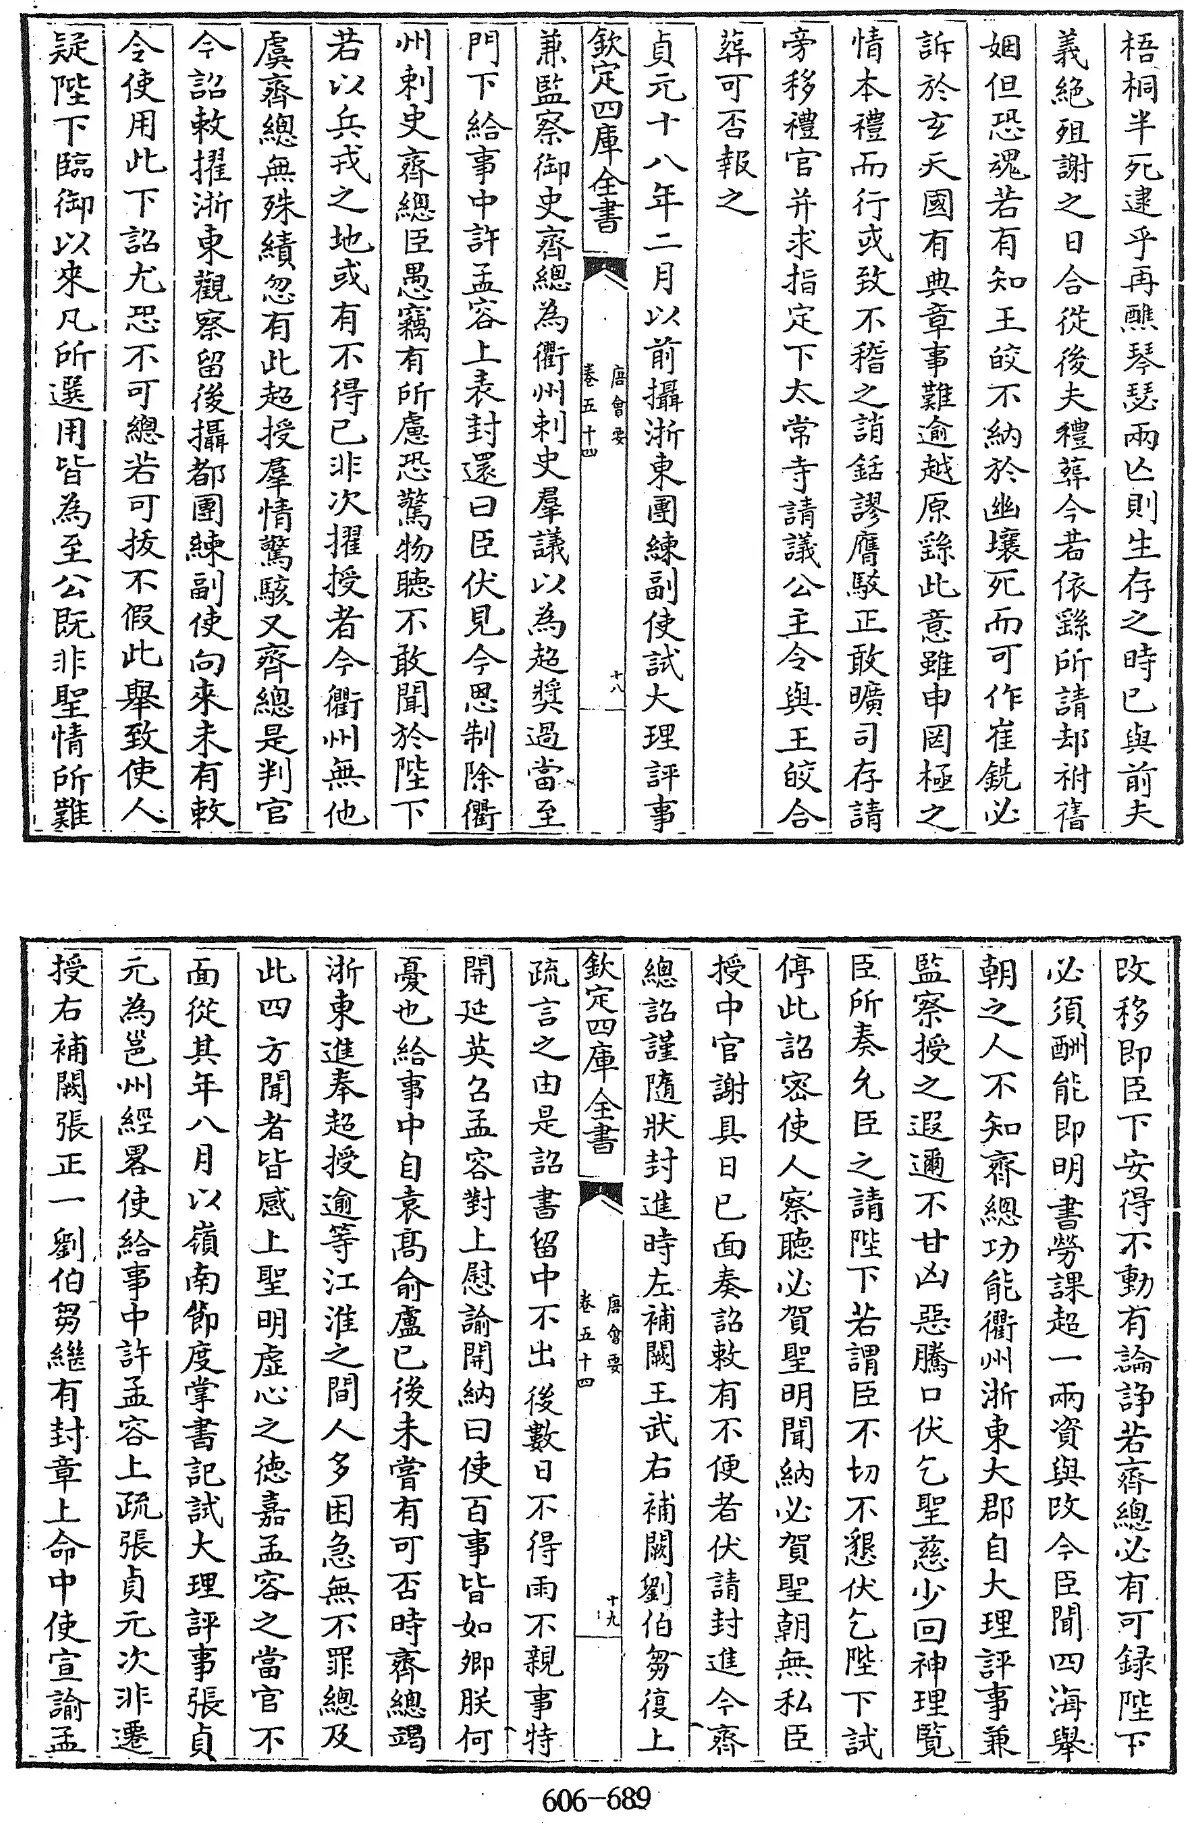 梧桐半死逮乎再醮琴瑟兩亡則生存之時已與前夫
義絶殂謝之日合從後夫禮葬今若依繇所請却祔舊
姻但恐魂若有知王皎不納於幽壤死而可作崔銑必
訴於玄天國有典章事難逾越原繇此意雖申罔極之
情本禮而行或致不稽之誚銛謬膺駮正敢曠司存請
旁移禮官并求指定下太常寺請議公主令與王皎合
葬可否報之
貞元十八年二月以前攝浙東團練副使試大理評事
欽定四庫全書
唐會要
卷五十四
十八
兼監察御史齊總為衢州刺史羣議以為超奨過當至
門下給事中許孟容上表封還曰臣伏見今恩制除衢
州刺史齊總臣愚竊有所慮恐驚物聽不敢聞於陛下
若以兵戎之地或有不得已非次擢授者今衢州無他
虞齊總無殊績忽有此超授羣情驚駭又齊總是判官
今詔敕擢浙東觀察留後攝都團練副使向來未有敕
令使用此下詔尤恐不可總若可拔不假此舉致使人
疑陛下臨御以來凡所選用皆為至公既非聖情所難
改移即臣下安得不動有論諍若齊總必有可録陛下
必須酬能即明書勞課超一兩資與改今臣聞四海舉
朝之人不知齊總功能衢州浙東大郡自大理評事兼
監察授之遐邇不甘凶惡騰口伏乞聖慈少回神理覧
臣所奏允臣之請陛下若謂臣不切不懇伏乞陛下試
停此詔密使人察聽必賀聖明聞納必賀聖朝無私臣
授中官謝具日已面奏詔敕有不便者伏請封進今齊
總詔謹隨狀封進時左補闕王武右補闕劉伯芻復上
欽定四庫全書
唐會要
卷五十四
十九
疏言之由是詔書留中不出後數日不得雨不親事特
開延英召孟容對上慰諭開納曰使百事皆如卿朕何
憂也給事中自袁高俞盧已後未嘗有可否時齊總竭
浙東進奉超授逾等江淮之間人多困急無不罪總及
此四方聞者皆感上聖明虛心之徳嘉孟容之當官不
面從其年八月以嶺南節度掌書記試大理評事張貞
元為邕州經畧使給事中許孟容上疏張貞元次非遷
授右補闕張正一劉伯芻繼有封章上命中使宣諭孟
606-689